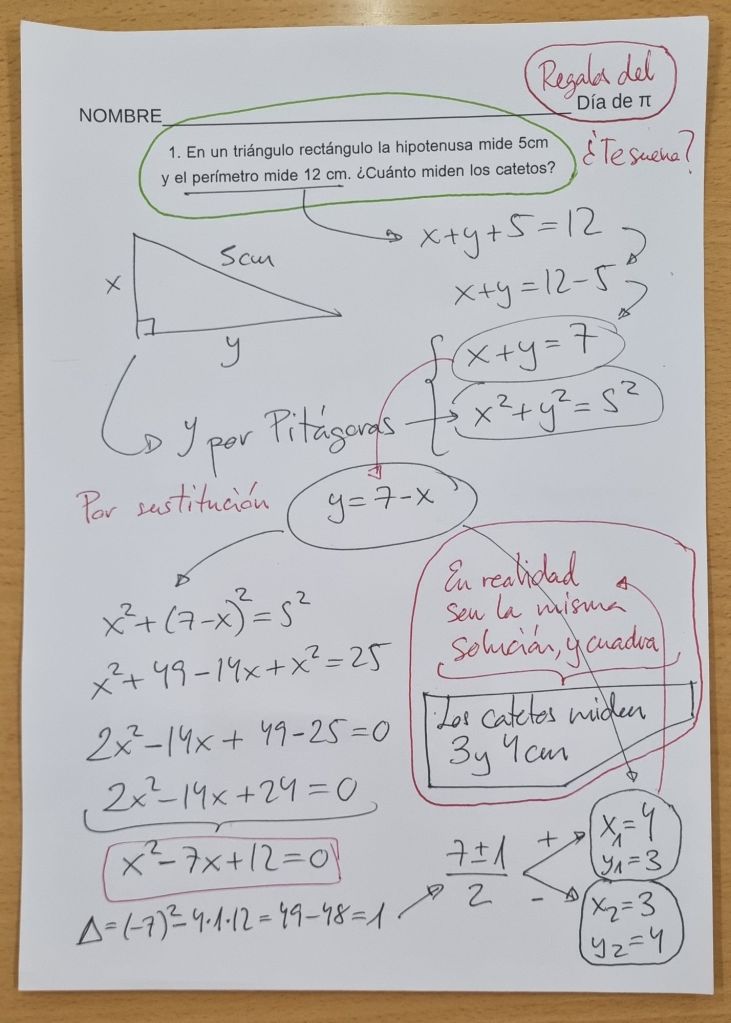 Regalos del
Día de π
NOMBRE
¿Te suena?
1. En un triángulo rectángulo la hipotenusa mide 5cm
y el perímetro mide 12 cm. ¿Cuánto miden los catetos?
x+y+5=12
5cm
x
y
x+y=12-5
x+y=7
y por Pitágoras
x²+y²=5²
Por sustitución
y=7-x
x²+(7-x)²=5²
x²+49-14x+x²=25
2x²-14x+49-25=0
2x²-14x+24=0
x²-7x+12=0
Δ=(-7)²-4·1·12=49-48=1
7±1
2
+
-
x₁=4
y₁=3
x₂=3
y₂=4
En realidad
son la misma
solución, y cuadra
Los catetos miden
3 y 4cm